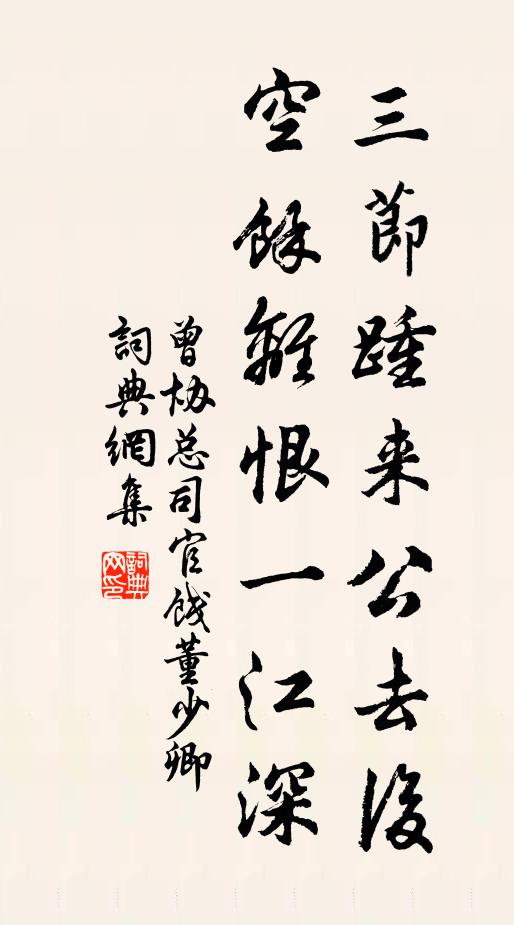 三節踵来公去後
空餘離恨一江深
曾协总司官餞董少卿
詞典網集
詞典
网印